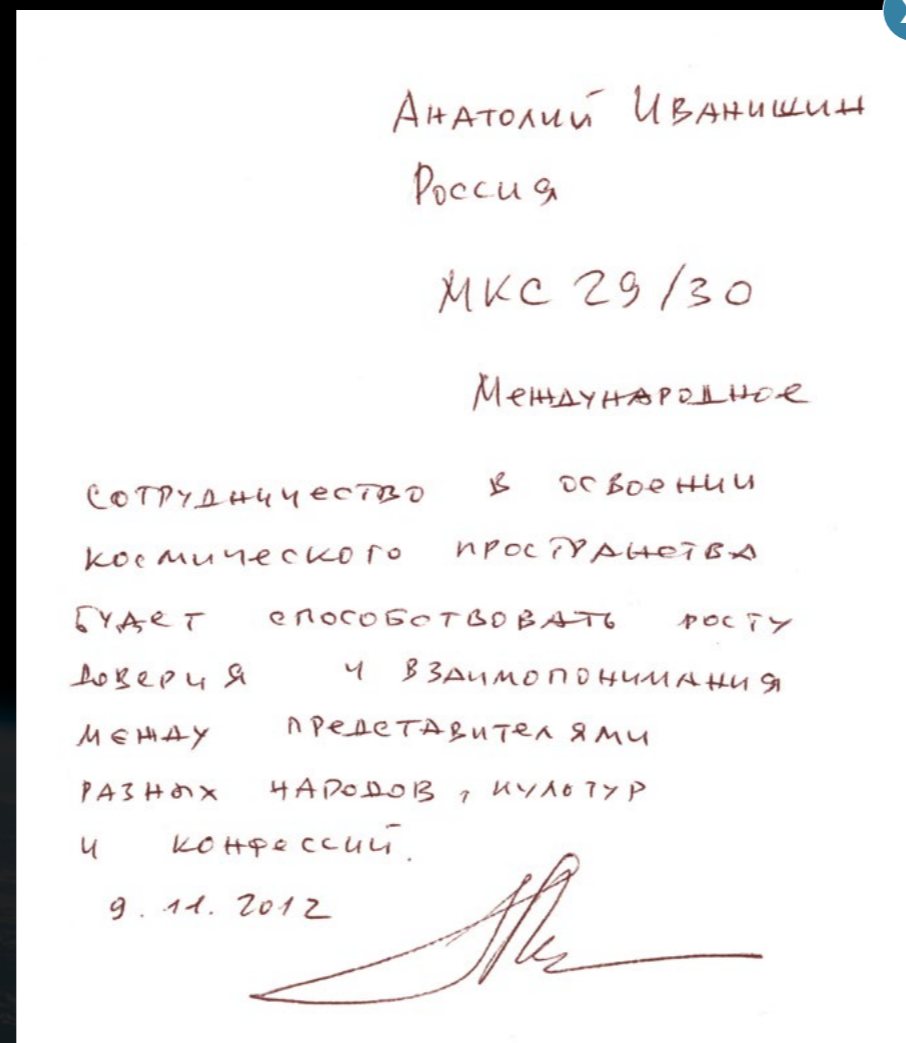 Анатолий Иванишин
Россия
МКС 29/30
Международное
сотрудничество в освоении
космического пространства
будет способствовать росту
доверия и взаимопонимания
между представителями
разных народов, культур
и конфессий.
9.11.2012